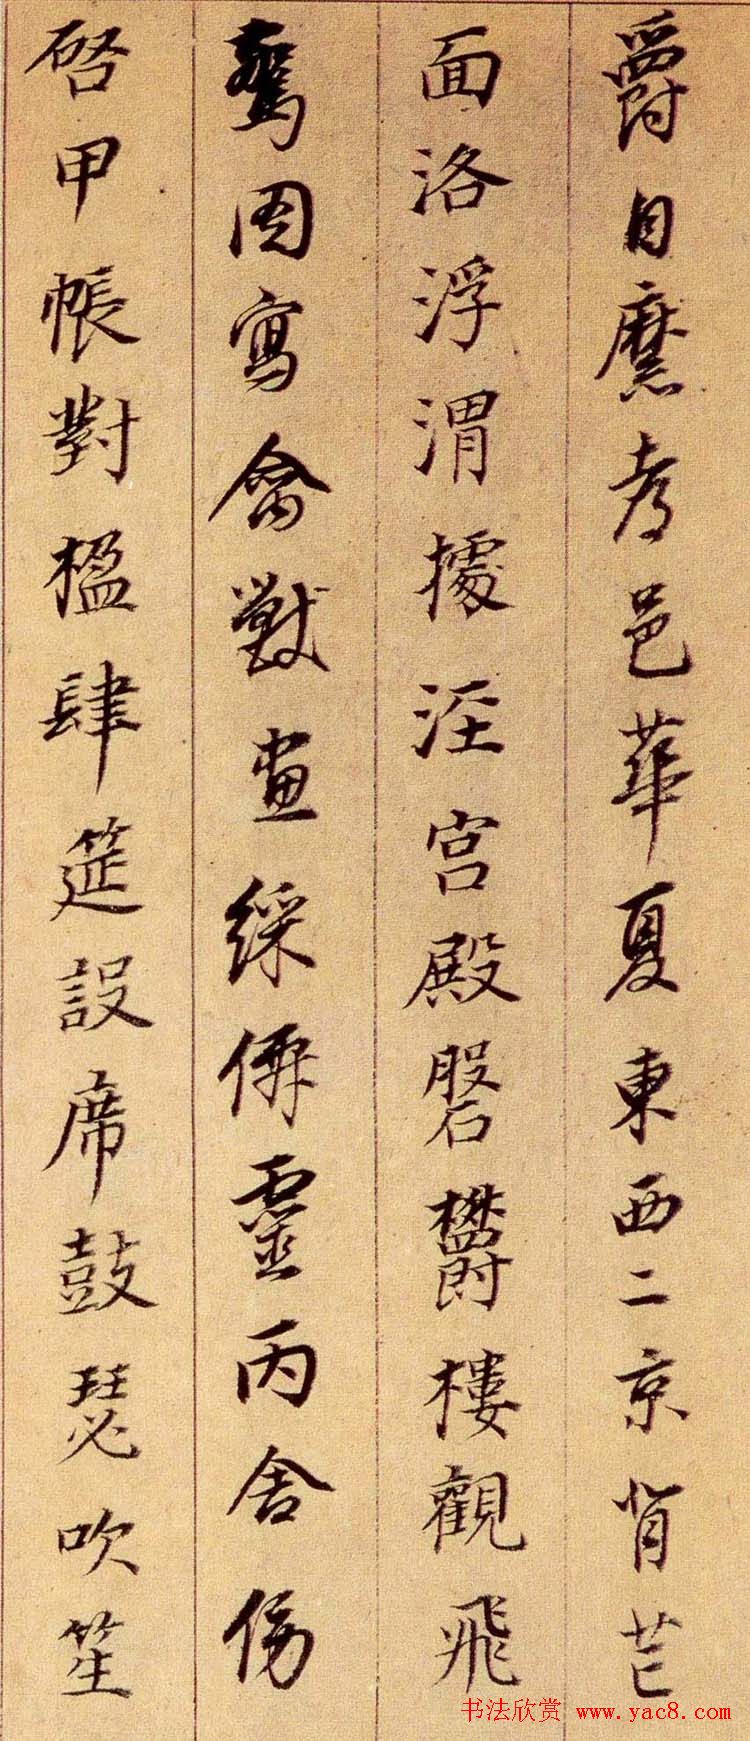 爵自縻孝邑華夏東西二京背芒
面洛浮渭據涇宫殿磐欝樓觀飛
驚圖寫禽獸畫綵僊靈丙舍傍
啓甲帳對楹肆筵設席鼓瑟吹笙
书法欣赏 www.yac8.com